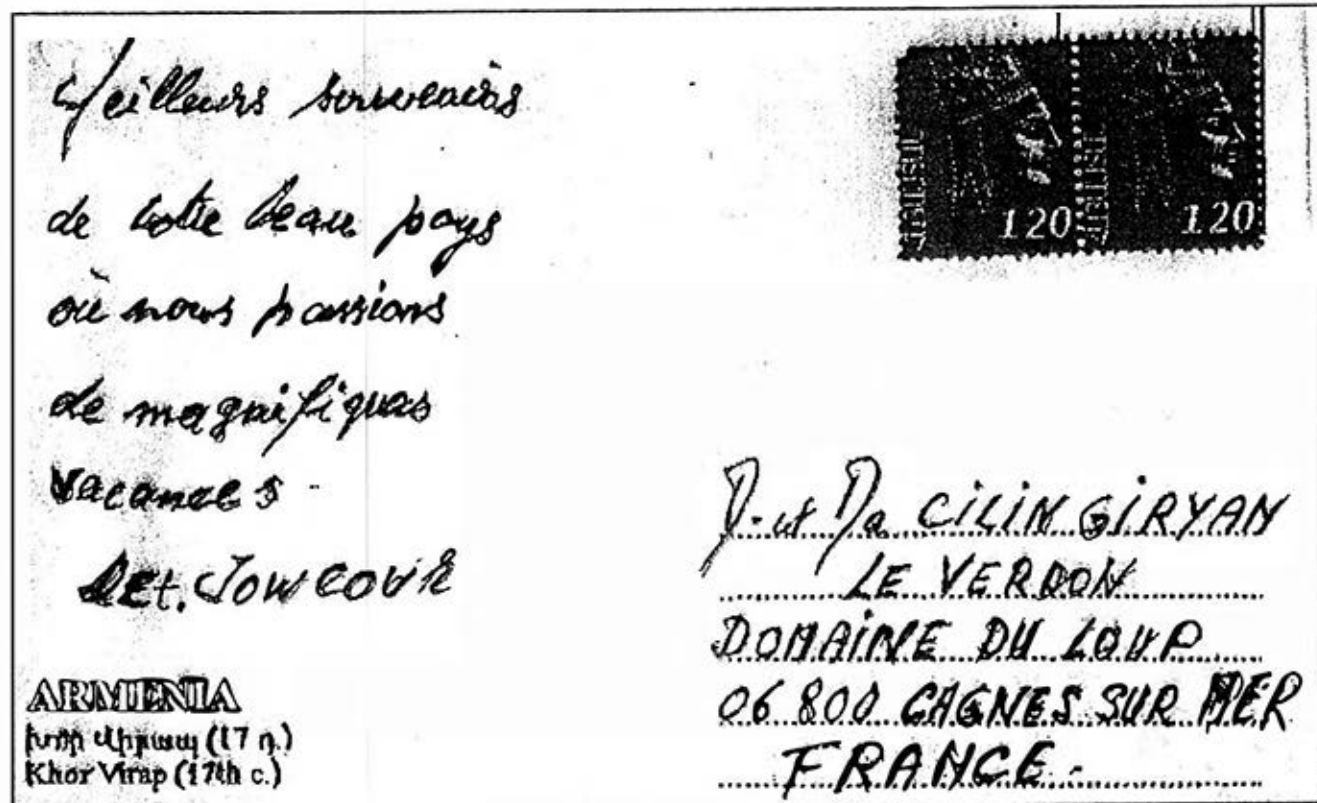 Meilleurs souvenirs
de votre beau pays
où nous passions
de magnifiques
vacances
ARMENIA
Խոր Վիրապ (17 դ.)
Khor Virap (17th c.)
120
120
M. et Me CILINGIRYAN
LE VERDON
DOMAINE DU LOUP
06 800 CAGNES SUR MER
FRANCE.